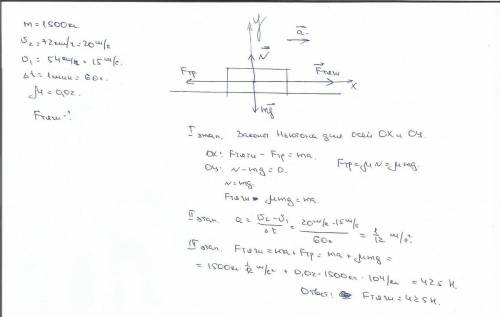 m = 1500кг
υ₂ = 72км/ч = 20 м/с
υ₁ = 54км/ч = 15 м/с.
Δt = 1мин = 60с.
μ = 0,02.
Fтяги - ?
y
a
N
Fтр
Fтяги
x
mg
I этап. Закон Ньютона для осей OX и OY.
OX: Fтяги - Fтр = ma.
Fтр = μN = μmg.
OY: N - mg = 0.
N = mg.
Fтяги - μmg = ma
II этап. a = υ₂ - υ₁ / Δt = 20 м/с - 15 м/с / 60с = 1/12 м/с².
III этап. Fтяги = ma + Fтр = ma + μmg =
= 1500кг · 1/12 м/с² + 0,02 · 1500кг · 10Н/кг = 425 Н.
Ответ: Fтяги = 425Н.